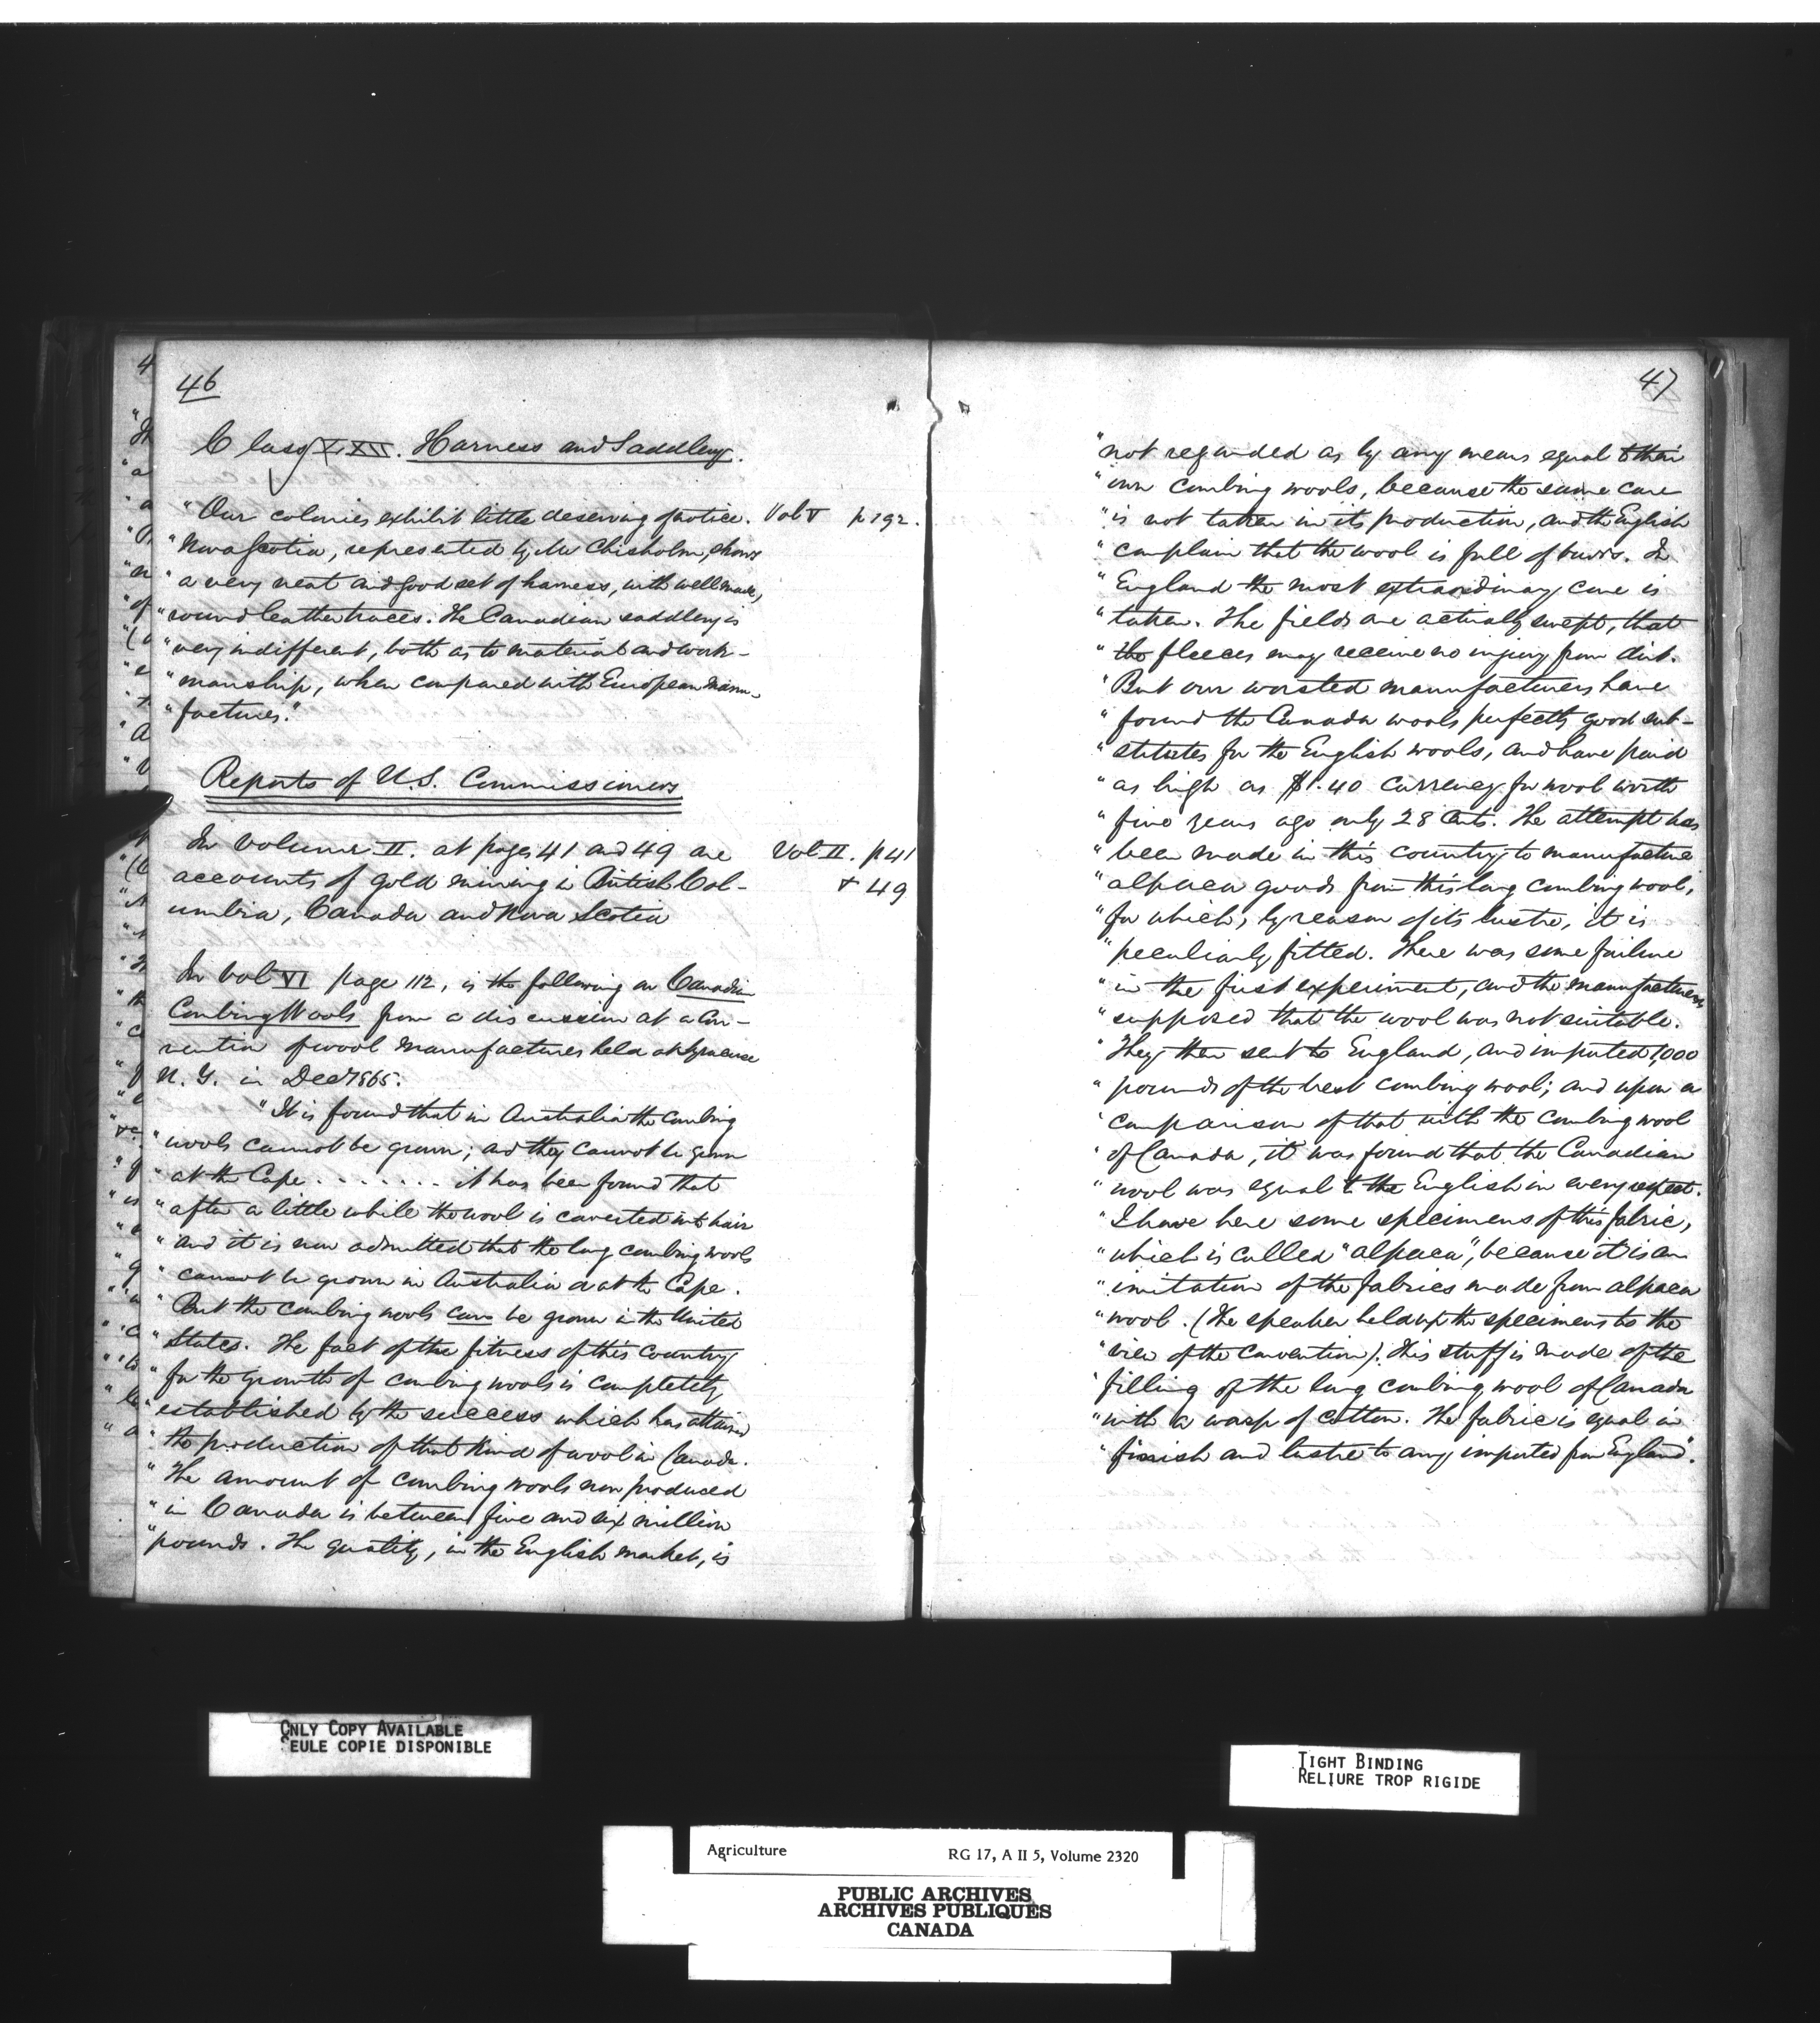 46
Class LXII. Harness and Saddlery.
"Our colonies exhibit little deserving of notice. Vol V p 192.
"Nova Scotia, represented by Mr Chisholm, shows
"a very neat and good set of harness, with well made,
"round leather traces. The Canadian saddlery is
"very indifferent, both as to material and work-
"manship, when compared with European Manu-
"factures."
Reports of U.S. Commissioners
In Volume II. at pages 41 and 49 are Vol II. p 41
accounts of gold mining in British Col- + 49
umbia, Canada and Nova Scotia
In Vol VI page 112, is the following on Canadian
Combing Wools from a discussion at a Con-
vention of wool manufacturers held at Syracuse
N.Y. in Dec 1865.
"It is found that in Australia the combing
"wools cannot be grown; and they cannot be grown
"at the Cape . . . . . . . it has been found that
"after a little while the wool is converted into hair
"and it is now admitted that the long combing wools
"cannot be grown in Australia or at the Cape.
"But the combing wools can be grown in the United
"States. The fact of the fitness of this country
"for the growth of combing wools is completely
"established by the success which has attained
"the production of that kind of wool in Canada.
"The amount of combing wools now produced
"in Canada is between five and six million
"pounds. The quality, in the English market, is
47
"not regarded as by any means equal to their
"own combing wools, because the same care
"is not taken in its production, and the English
"complain that the wool is full of burrs. In
"England the most extraordinary care is
"taken. The fields are actually swept, that
"the fleeces may receive no injury from dirt.
"But our worsted manufacturers have
"found the Canada wools perfectly good sub-
"stitutes for the English wools, and have paid
"as high as $1.40 currency for wool worth
"five years ago only 28 cents. The attempt has
"been made in this country to manufacture
"alpaca goods from this long combing wool,
"for which, by reason of its lustre, it is
"peculiarly fitted. There was some failure
"in the first experiment, and the manufacturers
"supposed that the wool was not suitable.
"They then sent to England, and imported 1,000
"pounds of the best combing wool; and upon a
"comparison of that with the combing wool
"of Canada, it was found that the Canadian
"wool was equal to the English in every respect.
"I have here some specimens of this fabric,
"which is called "alpaca", because it is an
"imitation of the fabrics made from alpaca
"wool. (The speaker held up the specimens to the
"view of the convention). This stuff is made of the
"filling of the long combing wool of Canada
"with a warp of cotton. The fabric is equal in
"finish and lustre to any imported from England".
ONLY COPY AVAILABLE
SEULE COPIE DISPONIBLE
TIGHT BINDING
RELIURE TROP RIGIDE
Agriculture RG 17, A II 5, Volume 2320
PUBLIC ARCHIVES
ARCHIVES PUBLIQUES
CANADA